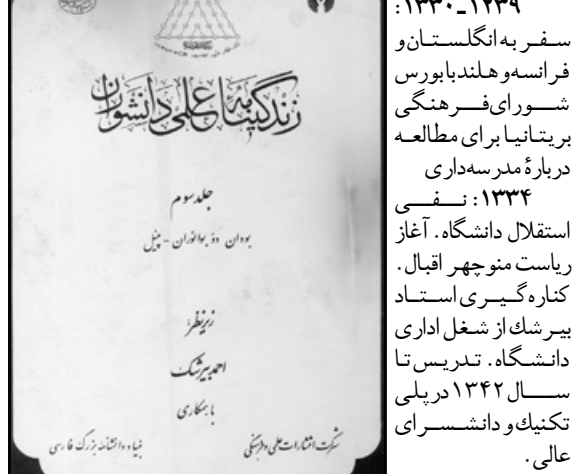 ۱۳۳۰ـ۱۲۳۹:
سفر به انگلستان و
فرانسه و هلند با بورس
شورای فرهنگی
بریتانیا برای مطالعه
دربارهٔ مدرسه‌داری
۱۳۳۴: نفی
استقلال دانشگاه. آغاز
ریاست منوچهر اقبال.
کناره‌گیری استاد
بیرشك از شغل اداری
دانشگاه. تدریس تا
سال ۱۳۴۲ در پلی
تکنیك و دانشسرای
عالی.
زندگینامه علمی دانشوران
جلد سوم
بودان دو بوانوران - پیل
زیر نظر:
احمد بیرشک
با همکاری
شرکت انتشارات علمی و فرهنگی
بنیاد دانشنامه بزرگ فارسی